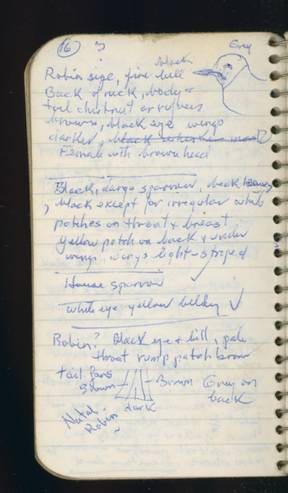 16
Grey
black
Robin size, fine bill
Back of neck, body &
tail chestnut or rufous
brown, black eye wings
darker,
Female with brown head
Black, large sparrow, beak heavy
, black except for irregular white
patches on throat & breast
yellow patch on back & under
wings. Juvs light-striped
House sparrow
white eye yellow belly ✓
Robin? Black eye & bill, pale
throat rump patch brown
tail fans
Brown Brown Grey on
dark back
Natal
Robin